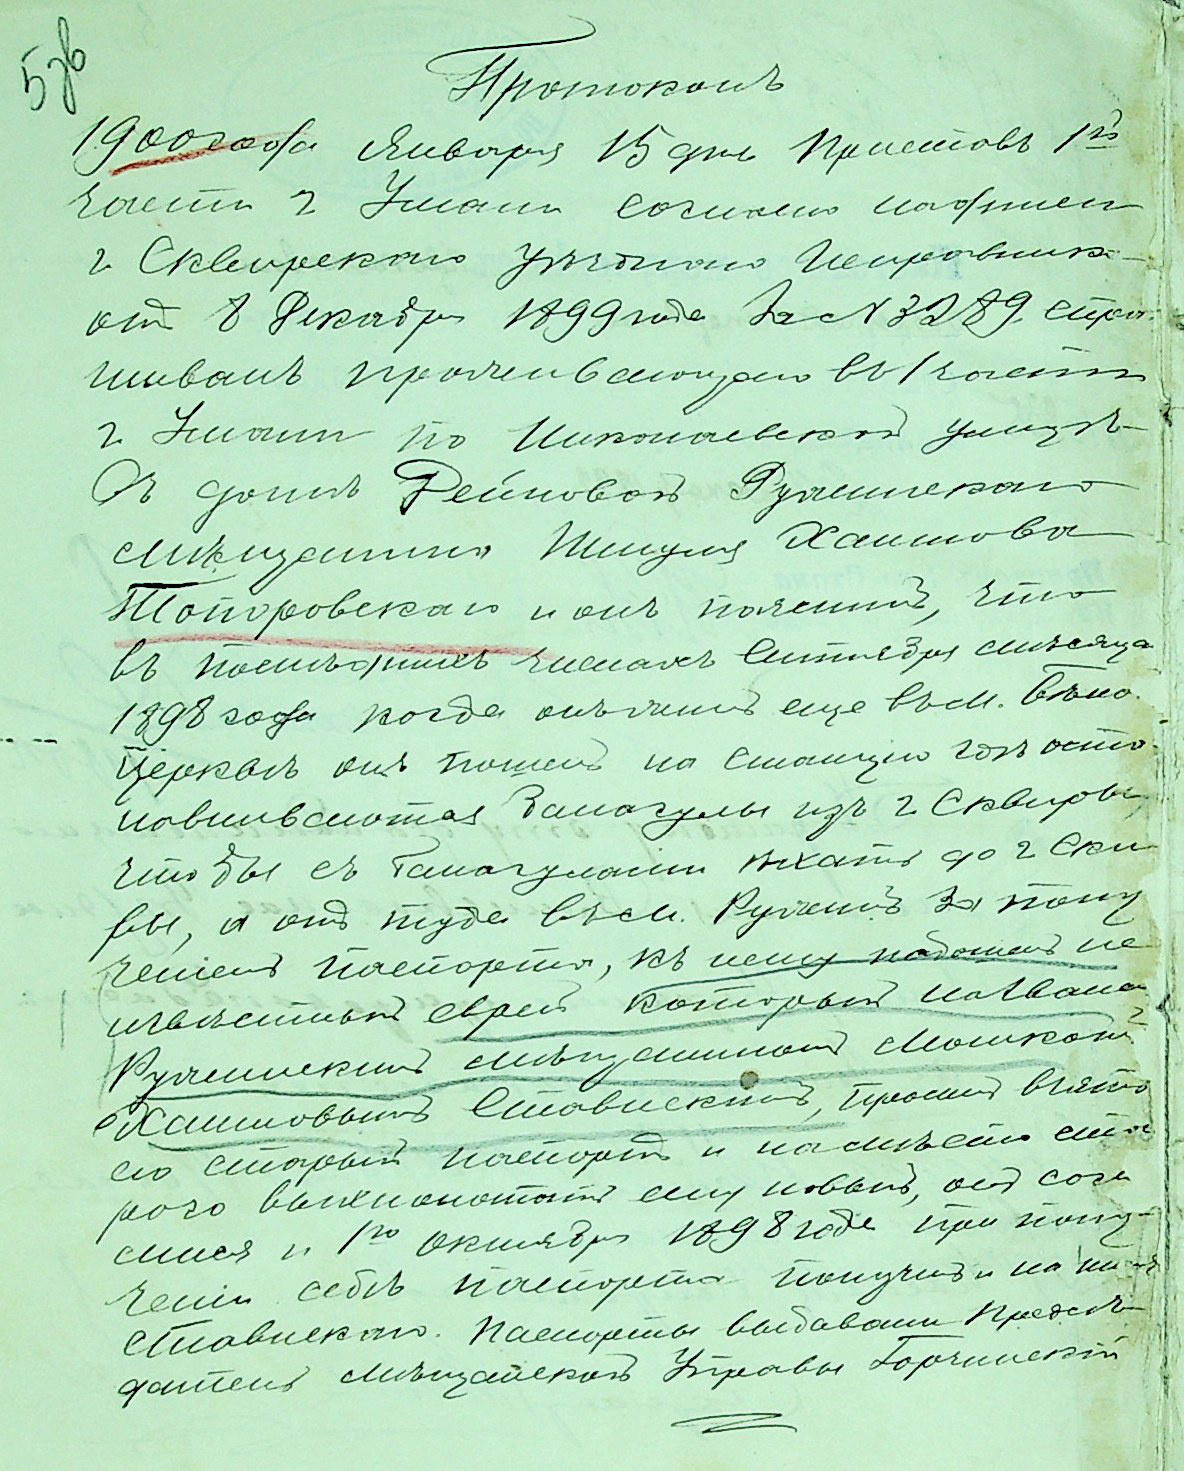 5 зв
Протоколъ
1900 года Января 15 дня Приставъ 1й
части г Умани согласно надписи
г Сквирскаго Уѣзднаго Исправника
отъ 8 Декабря 1899 года За № 3289. спра-
шивалъ проживающаго въ 1 части
г Умани по Николаевской улицѣ
Въ домѣ Рейновой Ружинскаго
мѣщанина Шмуля Хаимова
Топоровскаго и онъ пояснилъ, что
въ послѣднихъ числахъ Сентября мѣсяца
1898 года когда онъ жилъ еще въ м. Бѣло-
церквѣ онъ пошелъ на станцію гдѣ оста-
новливаются Балагулы изъ г Сквиры,
чтобы съ балагулами ѣхать до г Скви
ры, а отъ туда въ м. Ружинъ за полу
ченіемъ паспорта, къ нему подошелъ не
извѣстный еврей который назвался
Ружинскимъ мѣщаниномъ Мошкомъ
Хаимовымъ Ставискимъ, просилъ взять
его старый паспортъ и на мѣсто ста
раго выхлопотать ему новый, онъ согла
сился и 1го октября 1898 года при полу-
ченіи себѣ паспорта получилъ и на имя
Ставискаго. Паспорты выдавалъ Предсѣ-
датель мѣщанской Управы Горчинскій